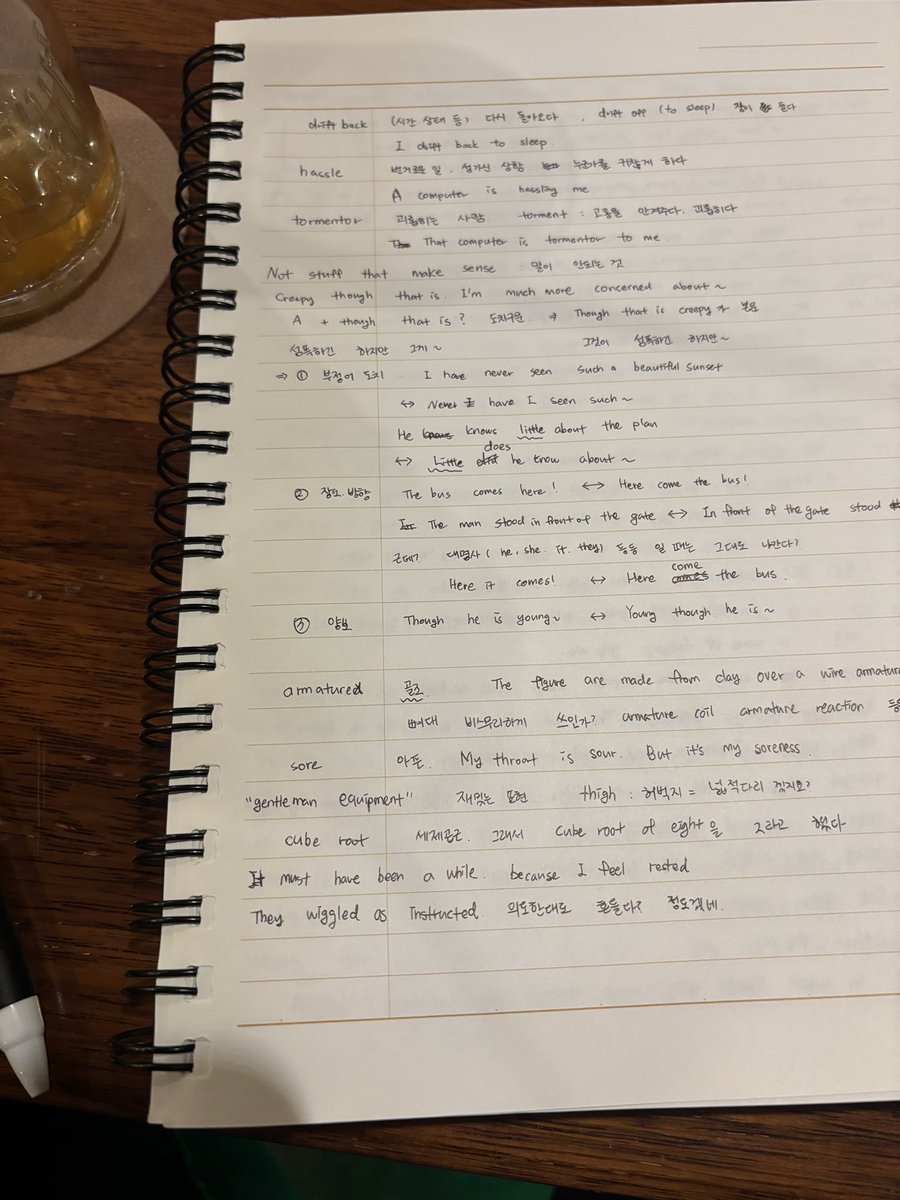 drift back (시간 상태 등) 다시 돌아오다 , drift off (to sleep) 잠이 들다
I drift back to sleep
hassle 번거로운 일, 성가신 상황 누군가를 귀찮게 하다
A computer is hassling me
tormentor 괴롭히는 사람 torment : 고통을 안겨주다, 괴롭히다
That computer is tormentor to me.
Not stuff that make sense 말이 안되는 것
Creepy though that is. I'm much more concerned about ~
A + though that is? 도치구문 ⇒ Though that is creepy 가 본음
섬뜩하긴 하지만 그게 ~ 그것이 섬뜩하긴 하지만 ~
⇒ ① 부정어 도치 : I have never seen such a beautiful sunset
↔ Never have I seen such ~
He knows little about the plan
↔ Little does he know about ~
② 장소, 방향 The bus comes here! ↔ Here come the bus!
The man stood in front of the gate ↔ In front of the gate stood
근데? 대명사 (he, she, it, they) 등등 일 때는 그대로 나간다?
Here it comes! ↔ Here come the bus.
③ 양보 Though he is young~ ↔ Young though he is ~
armatured 골조. The figure are made from clay over a wire armature
뼈대 비스무리하게 쓰인가? armature coil armature reaction 등
sore 아픈. My throat is sour. But it's my soreness.
"gentleman equipment" 재밌는 표현 thigh : 허벅지 = 넓적다리 겠지요?
cube root 세제곱근. 그래서 cube root of eight을 2라고 했다
It must have been a while. because I feel rested
They wiggled as instructed. 의도한대로 흔들다? 정도겠네.